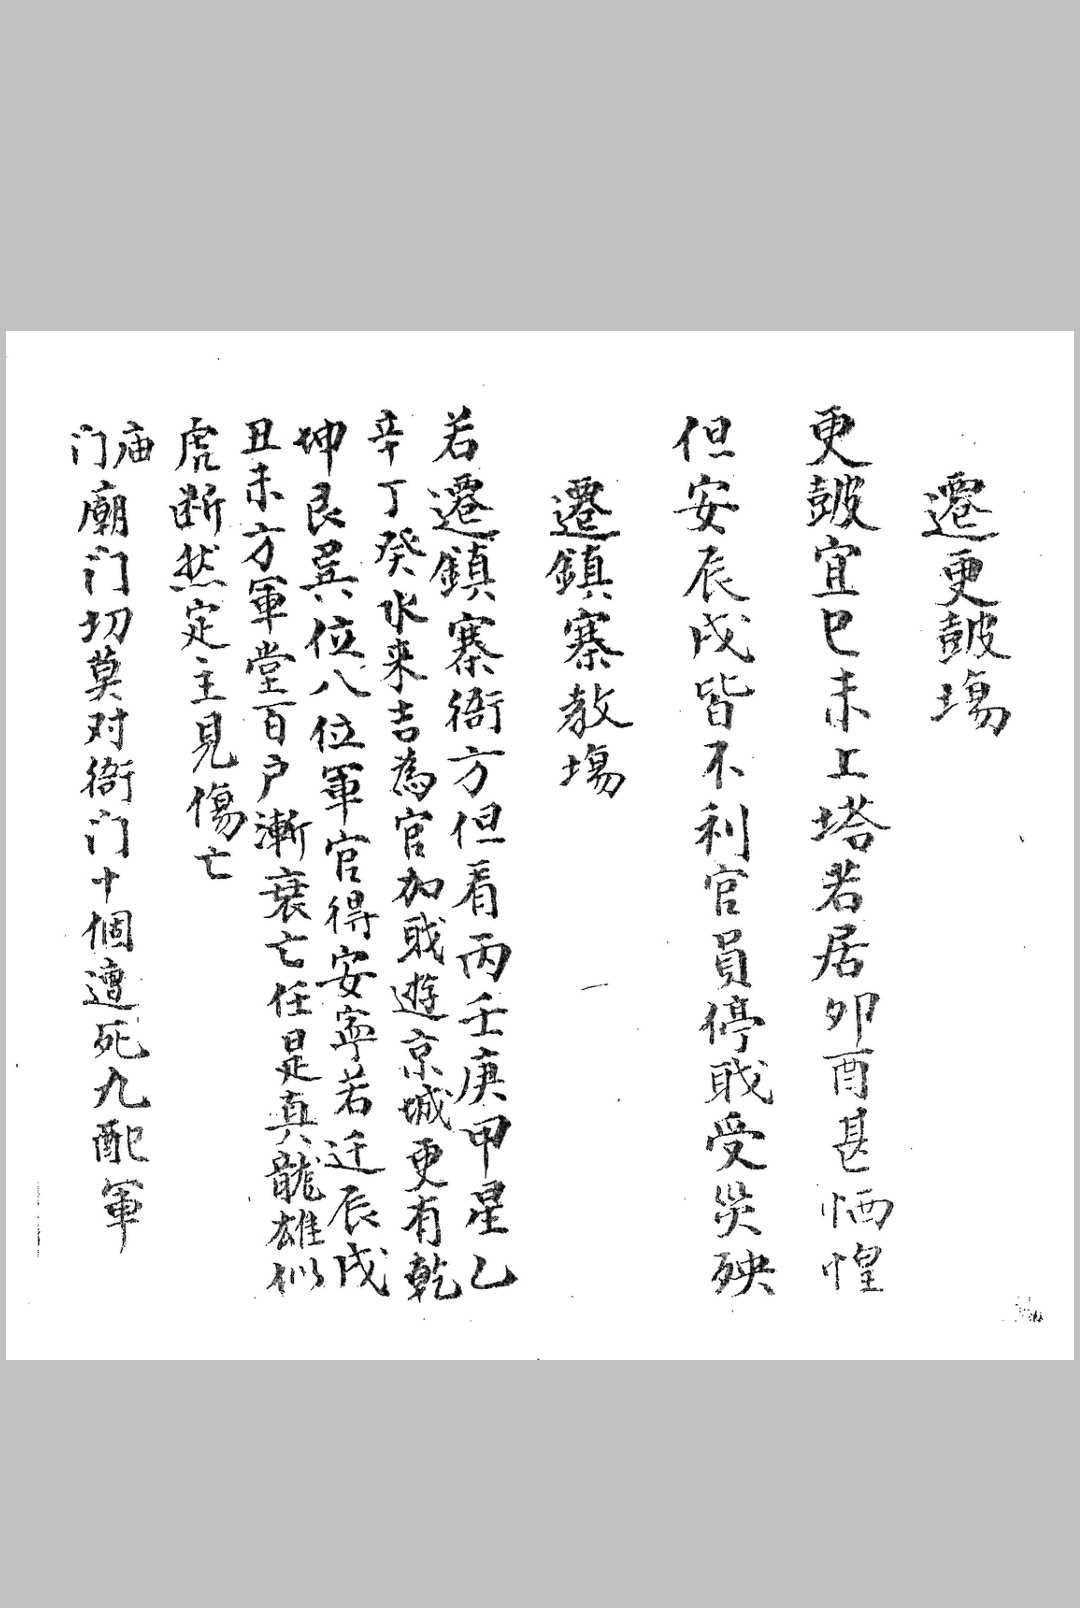 遷更皷塲
更皷宜巳未上塔若居卯酉甚恓惶
但安辰戌皆不利官員停戝受災殃
遷鎮寨教塲
若遷鎮寨衙方但看丙壬庚甲星乙
辛丁癸水来吉為官加戝遊京城更有乾
坤艮巽位八位軍官得安寧若迁辰戌
丑未方軍堂百户漸衰亡任是真龍雄似
虎断然定主見傷亡
庙门
廟门切莫对衙门十個遭死九配軍